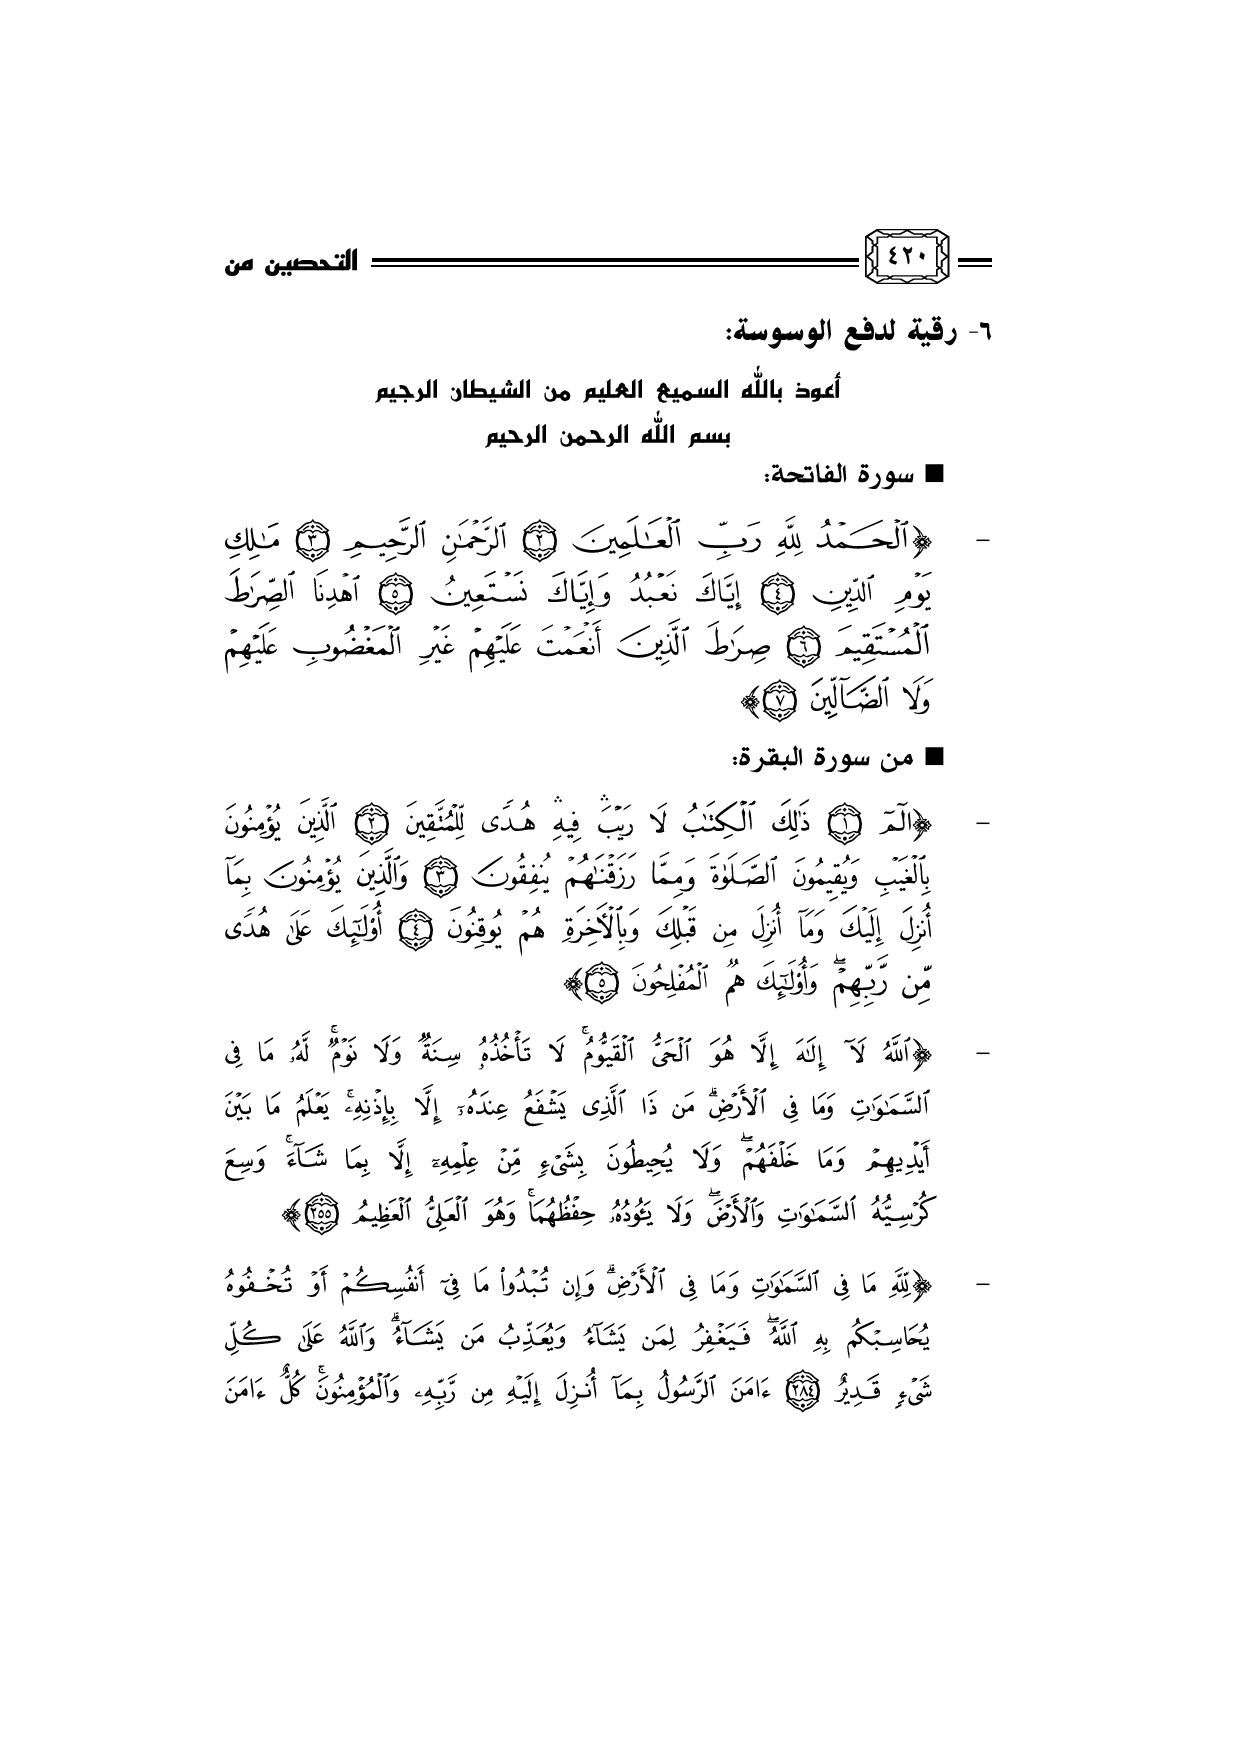 ٤٢٠
التحصين من
٦- رقية لدفع الوسوسة:
أعوذ بالله السميع العليم من الشيطان الرجيم
بسم الله الرحمن الرحيم
■ سورة الفاتحة:
- ﴿ٱلۡحَمۡدُ لِلَّهِ رَبِّ ٱلۡعَٰلَمِينَ ٢ ٱلرَّحۡمَٰنِ ٱلرَّحِيمِ ٣ مَٰلِكِ
يَوۡمِ ٱلدِّينِ ٤ إِيَّاكَ نَعۡبُدُ وَإِيَّاكَ نَسۡتَعِينُ ٥ ٱهۡدِنَا ٱلصِّرَٰطَ
ٱلۡمُسۡتَقِيمَ ٦ صِرَٰطَ ٱلَّذِينَ أَنۡعَمۡتَ عَلَيۡهِمۡ غَيۡرِ ٱلۡمَغۡضُوبِ عَلَيۡهِمۡ
وَلَا ٱلضَّآلِّينَ ٧﴾
■ من سورة البقرة:
- ﴿الٓمٓ ١ ذَٰلِكَ ٱلۡكِتَٰبُ لَا رَيۡبَۛ فِيهِۛ هُدٗى لِّلۡمُتَّقِينَ ٢ ٱلَّذِينَ يُؤۡمِنُونَ
بِٱلۡغَيۡبِ وَيُقِيمُونَ ٱلصَّلَوٰةَ وَمِمَّا رَزَقۡنَٰهُمۡ يُنفِقُونَ ٣ وَٱلَّذِينَ يُؤۡمِنُونَ بِمَآ
أُنزِلَ إِلَيۡكَ وَمَآ أُنزِلَ مِن قَبۡلِكَ وَبِٱلۡأٓخِرَةِ هُمۡ يُوقِنُونَ ٤ أُوْلَٰٓئِكَ عَلَىٰ هُدٗى
مِّن رَّبِّهِمۡۖ وَأُوْلَٰٓئِكَ هُمُ ٱلۡمُفۡلِحُونَ ٥﴾
- ﴿ٱللَّهُ لَآ إِلَٰهَ إِلَّا هُوَ ٱلۡحَيُّ ٱلۡقَيُّومُۚ لَا تَأۡخُذُهُۥ سِنَةٞ وَلَا نَوۡمٞۚ لَّهُۥ مَا فِي
ٱلسَّمَٰوَٰتِ وَمَا فِي ٱلۡأَرۡضِۗ مَن ذَا ٱلَّذِي يَشۡفَعُ عِندَهُۥٓ إِلَّا بِإِذۡنِهِۦۚ يَعۡلَمُ مَا بَيۡنَ
أَيۡدِيهِمۡ وَمَا خَلۡفَهُمۡۖ وَلَا يُحِيطُونَ بِشَيۡءٖ مِّنۡ عِلۡمِهِۦٓ إِلَّا بِمَا شَآءَۚ وَسِعَ
كُرۡسِيُّهُ ٱلسَّمَٰوَٰتِ وَٱلۡأَرۡضَۖ وَلَا يَـُٔودُهُۥ حِفۡظُهُمَاۚ وَهُوَ ٱلۡعَلِيُّ ٱلۡعَظِيمُ ٢٥٥﴾
- ﴿لِّلَّهِ مَا فِي ٱلسَّمَٰوَٰتِ وَمَا فِي ٱلۡأَرۡضِۗ وَإِن تُبۡدُواْ مَا فِيٓ أَنفُسِكُمۡ أَوۡ تُخۡفُوهُ
يُحَاسِبۡكُم بِهِ ٱللَّهُۖ فَيَغۡفِرُ لِمَن يَشَآءُ وَيُعَذِّبُ مَن يَشَآءُۗ وَٱللَّهُ عَلَىٰ كُلِّ
شَيۡءٖ قَدِيرٌ ٢٨٤ ءَامَنَ ٱلرَّسُولُ بِمَآ أُنزِلَ إِلَيۡهِ مِن رَّبِّهِۦ وَٱلۡمُؤۡمِنُونَۚ كُلٌّ ءَامَنَ